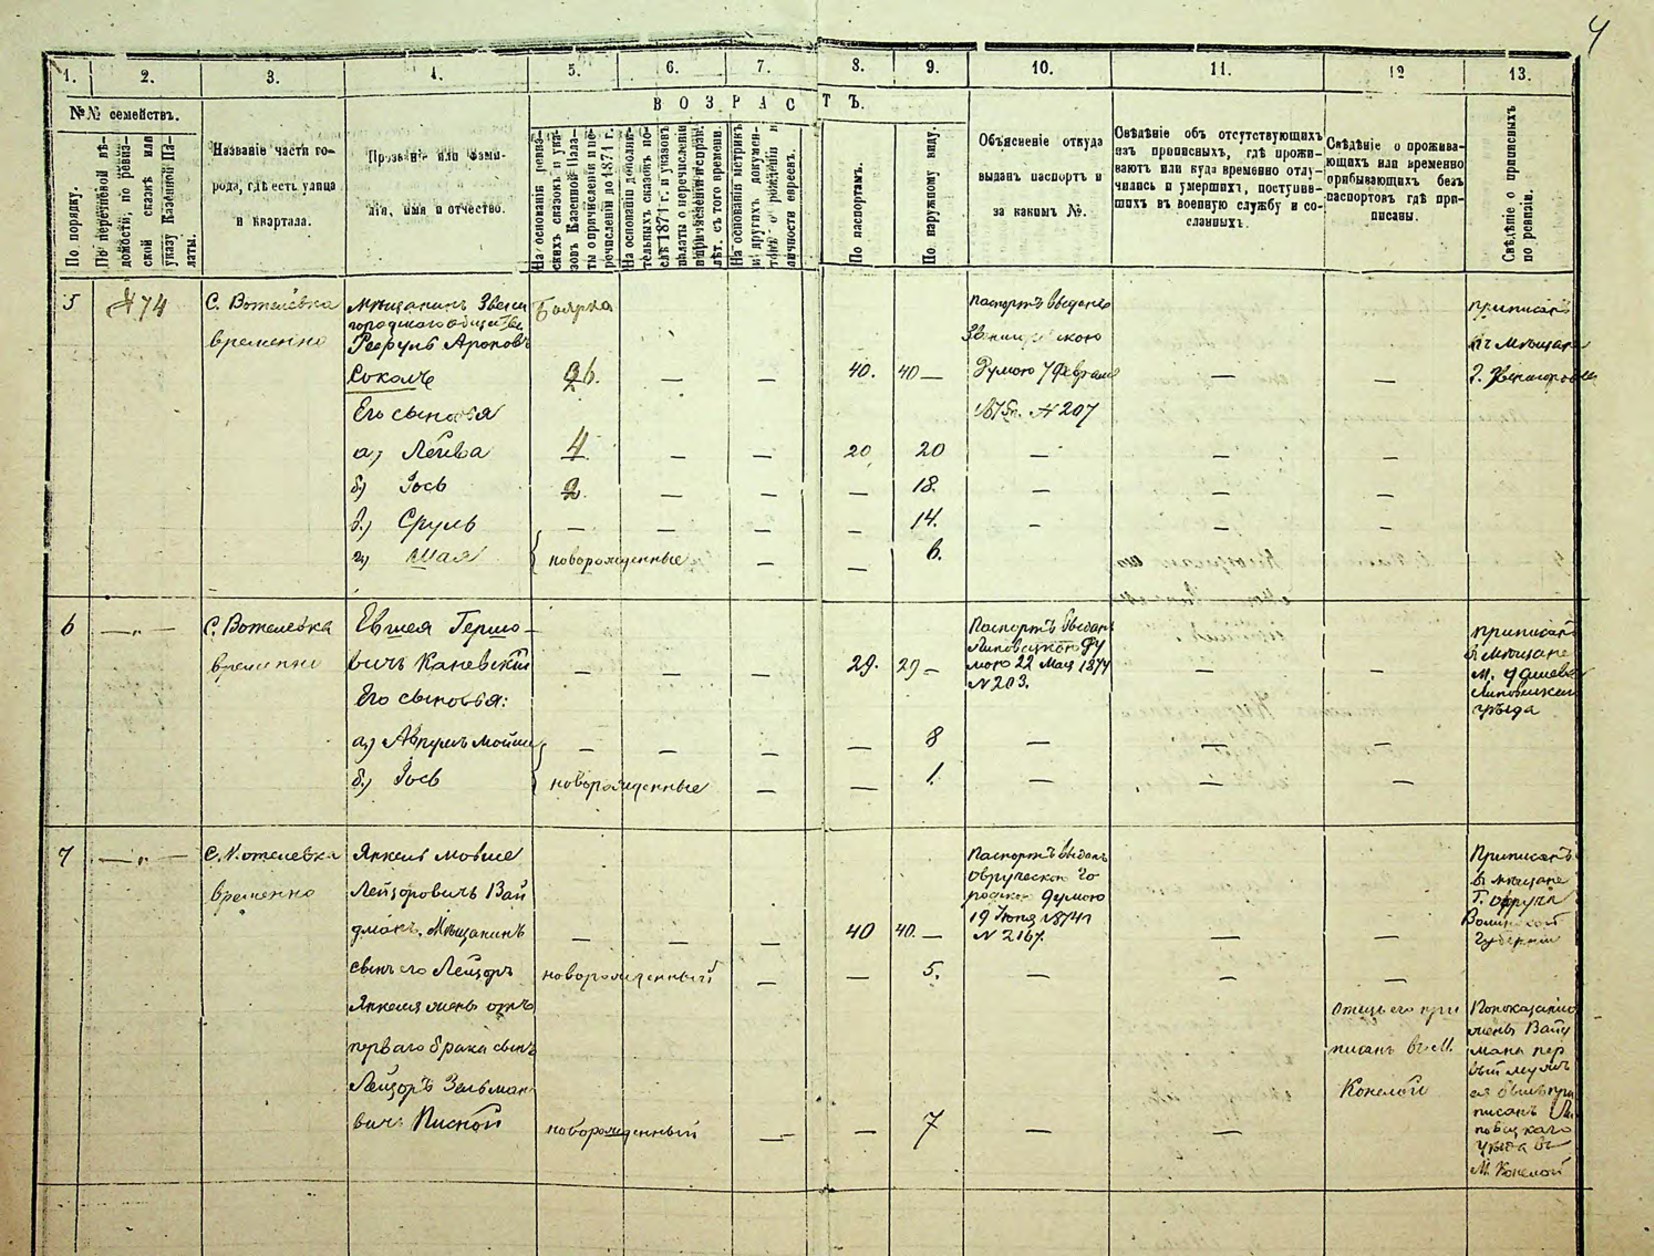 4
1. 2. 3. 4. 5. 6. 7. 8. 9. 10. 11. 12 13.
№№ семействъ.
По порядку.
По перечневой вѣ-
домости, по ревиз-
ской сказкѣ или
указу Казенной Па-
латы.
Названіе части го-
рода, гдѣ есть улица
и квартала.
Прозваніе или фами-
лія, имя и отчество.
ВОЗРАСТЪ.
На основаніи ревиз-
скихъ сказокъ и ука-
зовъ Казенной Пала-
ты о причисленіи и пе-
речисленіи до 1874 г.
На основаніи дополни-
тельныхъ сказокъ по-
слѣ 1874 г. и указовъ
палаты о перечисленіи
лѣт. съ того времени.
На основаніи метрикъ
и другихъ докумен-
товъ о рожденіи и
личности евреевъ.
По паспортамъ.
По наружному виду.
Объясненіе откуда
выданъ паспортъ и
за какимъ №.
Свѣдѣніе объ отсутствующихъ
изъ приписныхъ, гдѣ прожи-
ваютъ или куда временно отлу-
чились и умершихъ, поступив-
шихъ въ военную службу и со-
сланныхъ.
Свѣдѣніе о прожива-
ющихъ или временно
прибывающихъ безъ
паспортовъ гдѣ при-
писаны.
Свѣдѣніе о приписныхъ
по ревизіи.
5 № 74 С. Вотылевка
временно
Мѣщанинъ Звени
городскаго общества
Ароновъ
Соколъ 26. — — 40. 40 — — —
Боярка
Паспортъ выданъ
Думою 7 Февраля
187 г. № 207
приписанъ
въ мѣщане
г.
Его сыновья
а) Лейба 4 — — 20 20 — — —
б) Іось 2 — — — 18. — — —
в) Сруль — — — — 14. — — —
г) Шая новорожденные — — 6.
6 — „ — С. Вотылевка
временно
Евшея Гершо-
вичъ Каневскій — — — 29. 29 — — —
Паспортъ выданъ
Липовецкою Ду
мою 22 Мая 1874
№ 203.
приписанъ
въ мѣщане
м. Дашева
Липовецкаго
уѣзда
Его сыновья:
а) Аврумъ Мойше — — — — 8 — — —
б) Іось новорожденные — — 1. — — —
7 — „ — С. Вотылевка
временно
Янкель Мовше
Лейзоровичъ Вай
дманъ. Мѣщанинъ — — — 40 40. — — —
Паспортъ выданъ
Овручской Го
родской Думою
19 Іюня 1874 г
№ 2167.
Приписанъ
въ мѣщане
г. Овруча
Волынской
Губерніи
сынъ его Лейзоръ новорожденный — — 5. — — —
Янкеля жены отъ
перваго брака сынъ
Лейзоръ Зельмано
вичъ Писной новорожденный — — 7 — —
Отецъ его при
писанъ въ М.
Конелой
По показанію
жены Вайд
мана пер
вый мужъ
ея былъ при
писанъ Ли
повецкаго
уѣзда въ
М. Конелой